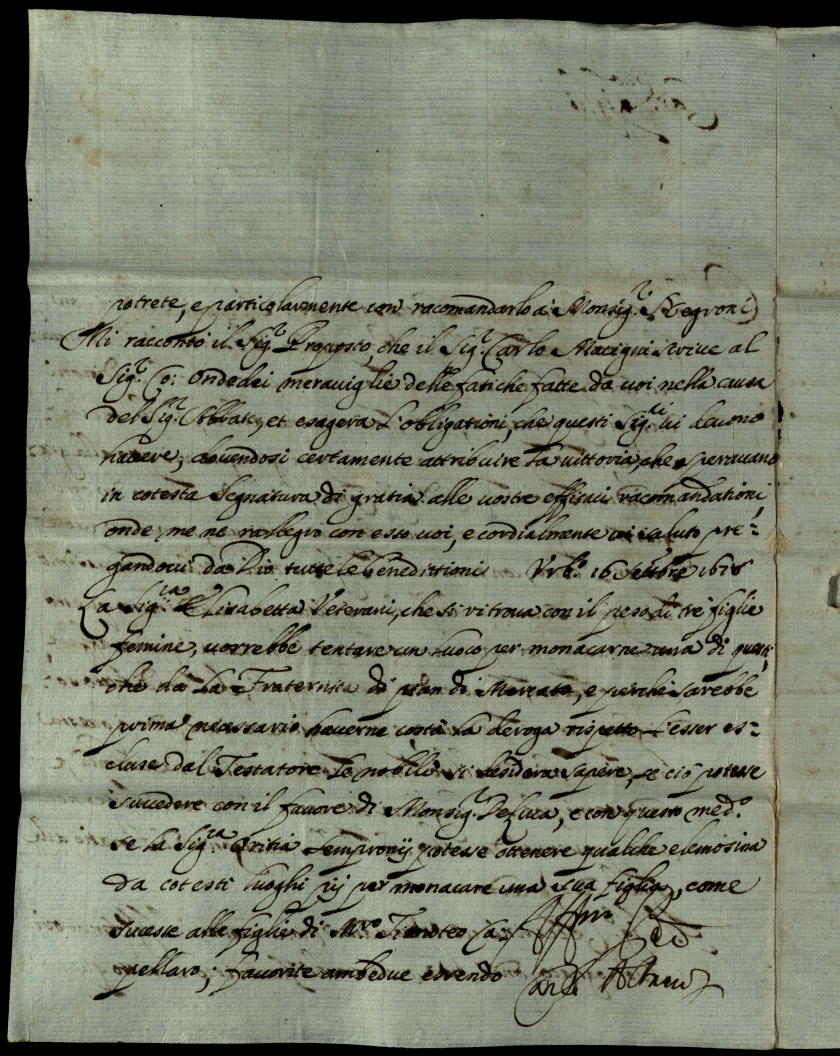 potrete, e particolarmente con racomandarlo à Monsig.r Negroni
Mi raccontò il Sig.r Proposto, che il Sig.r Carlo Macigni scrive al
Sig.r Co: Ondedei meraviglie delle fatiche fatte da voi nella causa
del Sig.r Abbate, et esagera l'obligationi, che questi Sig.ri vi devono
havere, dovendosi certamente attribuire la vittoria che speravano
in cotesta Segnatura di gratia alle vostre efficaci racomandationi,
onde me ne rallegro con esso voi, e cordialmente vi saluto pre=
gandovi da Dio tutte le benedittioni Urb.o 16 Settbre 1678
La Sig.ra Elisabetta Veterani, che si ritrova con il peso di tre figlie
femine, vorrebbe tentare un luoco per monacarne una di questi
che dà la Fraternita di pian di Mercato, e perche sarebbe
prima necessario haverne costà la deroga rispetto l'esser es=
cluse dal Testatore le nobili si desidera sapere, se ciò potesse
succedere con il favore di Monsig.r De Luca, e con questo med.o
se la Sig.ra Oritia Sempronij potesse ottenere qualche elemosina
da cotesti luoghi pij per monacare una sua figlia, come
sucesse alle figlie di M.ro Timoteo Ca=
pellaro; favorite ambedue
Aff.mo